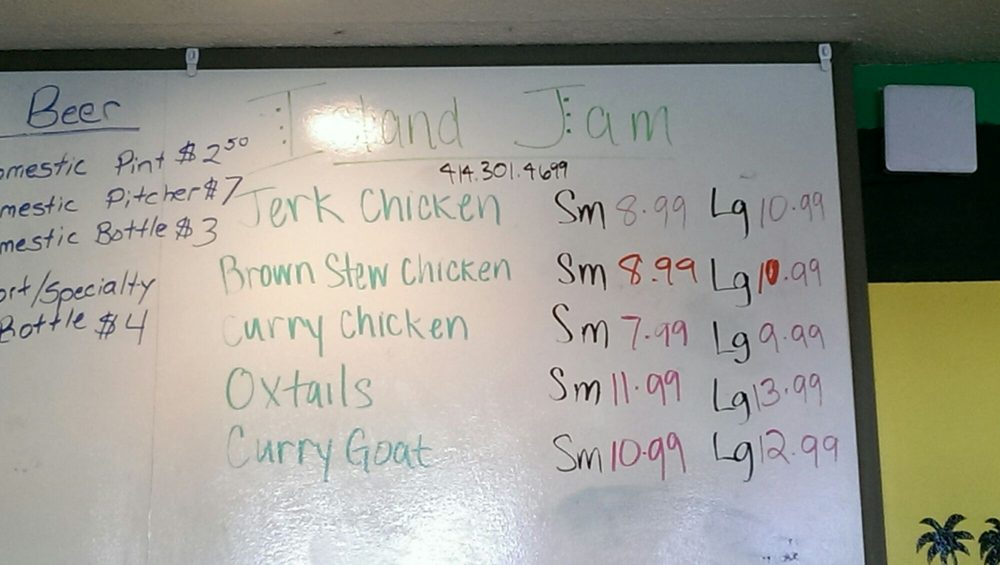 Beer
omestic Pint $2.50
mestic Pitcher $7
mestic Bottle $3
ort/Specialty
Bottle $4
Island Jam
414.301.4699
Jerk Chicken Sm 8.99 Lg 10.99
Brown Stew Chicken Sm 8.99 Lg 10.99
Curry Chicken Sm 7.99 Lg 9.99
Oxtails Sm 11.99 Lg 13.99
Curry Goat Sm 10.99 Lg 12.99